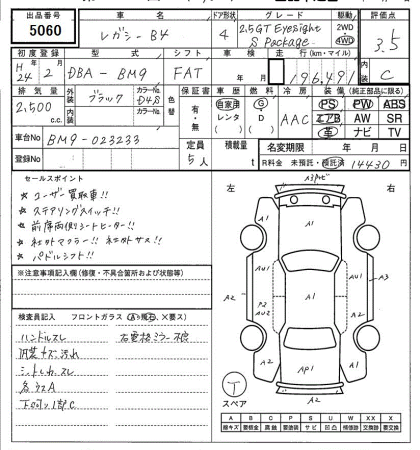 出品番号 車名 ドア形状 グレード 駆動 評価点
5060 レガシー B4 4 2.5GT EyeSight S Package 2WD 4WD 3.5
初度登録 型式 シフト 車検 走行(km・マイル) 内装
H24 2月 DBA-BM9 FAT 年 月 196,491 C
排気量 外装 カラーNo. 色替 保証書 車歴 燃料 冷房 装備(純正部品に限る)
2,500 c.c. ブラック D4S 有・無 自家用 レンタ G D AAC PS PW ABS
カラーNo. エアB AW SR
車台No BM9-023233 定員 5人 積載量 t 革 ナビ TV
登録No 名変期限 年 月 日
R料金 未預託・預託済 14430 円
セールスポイント
★ ユーザー買取車!!
★ ステアリングスイッチ!!
★ 前席両側シートヒーター!!
★ 社外マフラー!! 社外サス!!
★ パドルシフト!!
※注意事項記入欄(修復・不具合箇所および状態等)
検査員記入 フロントガラス
ハンドルスレ 右電格ミラー不良
内装キズ汚れ
シートスレ
各ウスA
左 右
A1 A1
AU1 A1 AU1 A3
A2 P2 AU2 A2
A1 AP1 A1
A2
スペア
A B C P S U W X XX
線キズ 要板金 腐蝕 要塗装 サビ 凹凸 補修跡 交換跡 要交換